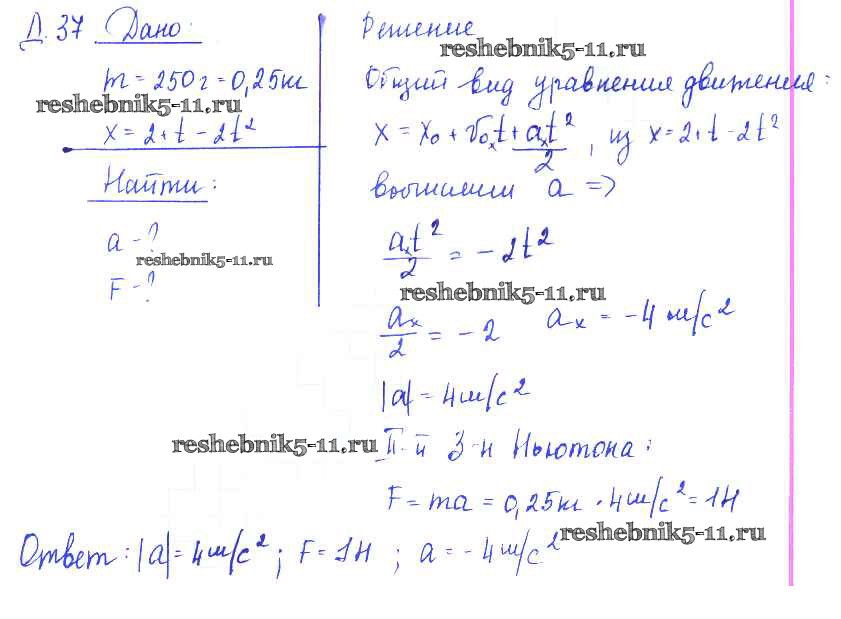 Д. 37 Дано:
m = 250 г = 0,25 кг
reshebnik5-11.ru
x = 2 + t - 2t²
Найти:
a - ?
reshebnik5-11.ru
F - ?
Решение
reshebnik5-11.ru
Общий вид уравнения движения:
x = x₀ + v₀ₓt + aₓt²/2, из x = 2 + t - 2t²
a =>
aₓt²/2 = - 2t²
reshebnik5-11.ru
aₓ/2 = - 2 aₓ = - 4 м/с²
|a| = 4 м/с²
reshebnik5-11.ru
II-й З-н Ньютона:
F = ma = 0,25 кг · 4 м/с² = 1 Н
reshebnik5-11.ru
Ответ: |a| = 4 м/с²; F = 1 Н; a = - 4 м/с²